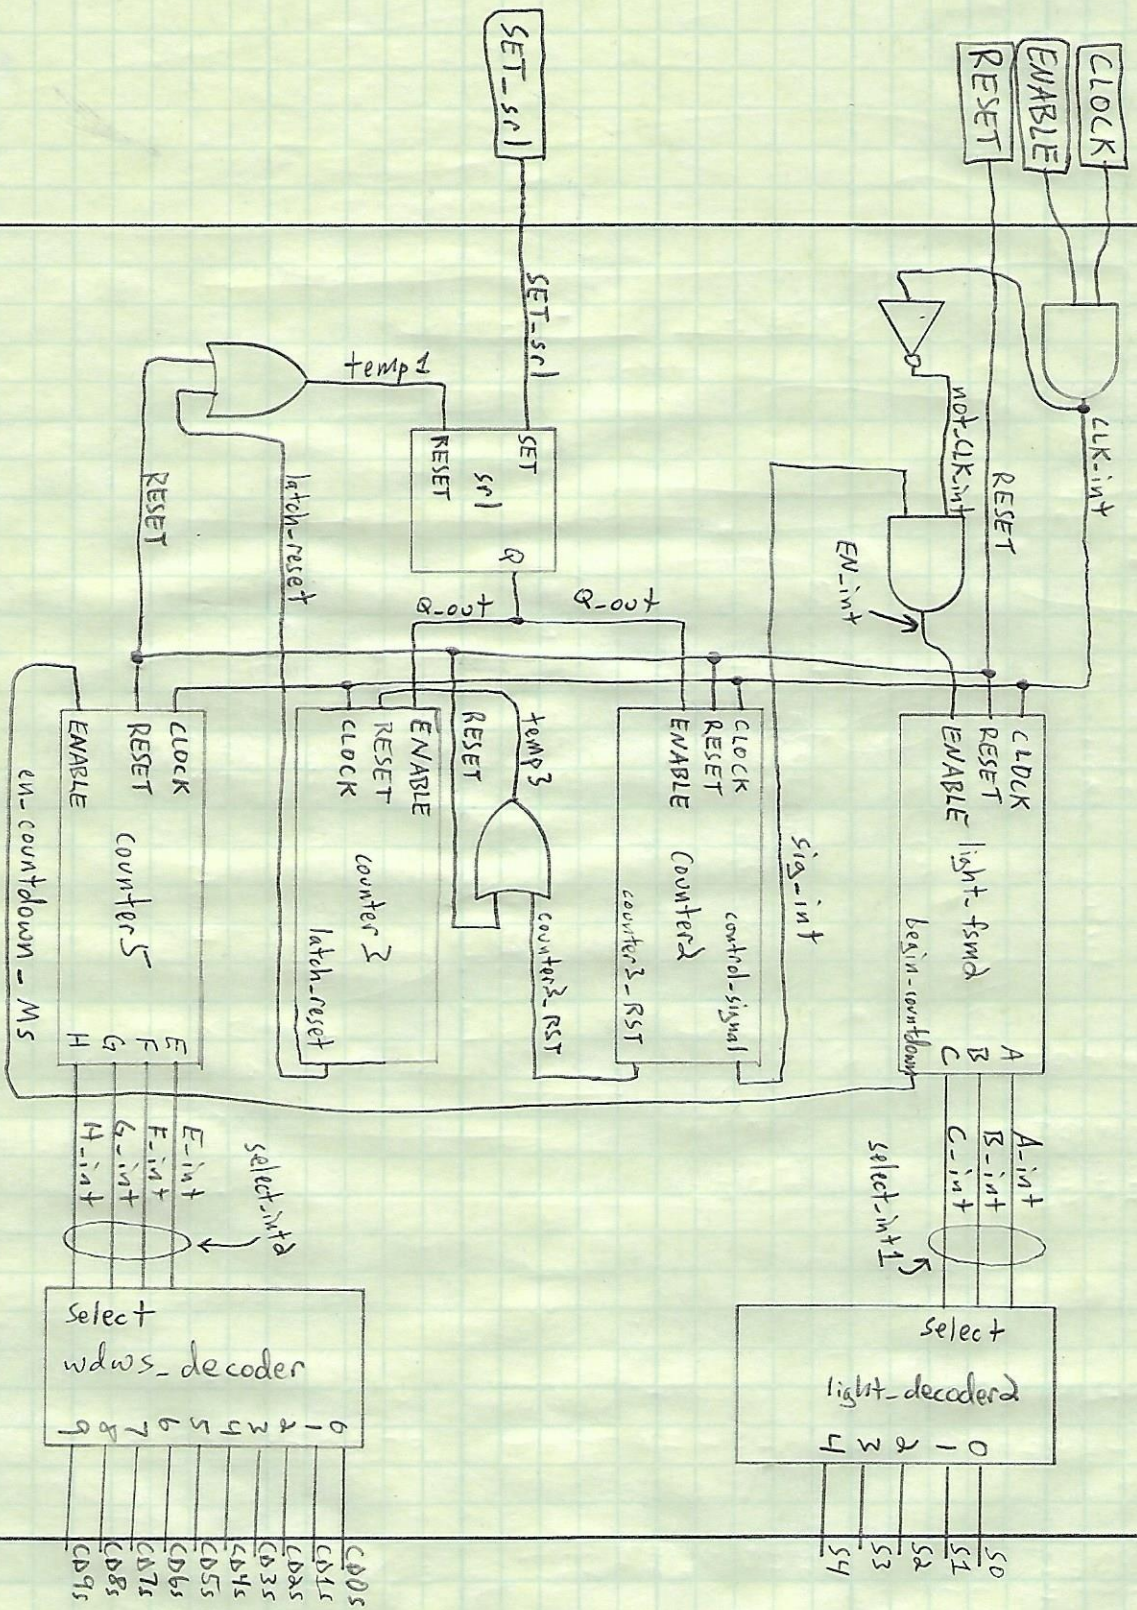 CLOCK
ENABLE
RESET
SET_sr1
CLK_int
not_CLK_int
RESET
EN_int
SET_sr1
SET
RESET
sr1
Q
temp1
RESET
latch_reset
Q_out
Q_out
CLOCK
RESET
ENABLE
light_fsm2
begin-countdown
A
B
C
sig_int
CLOCK
RESET
ENABLE
Counter2
control-signal
counter3_RST
temp3
RESET
counter3_RST
ENABLE
RESET
CLOCK
counter3
latch_reset
CLOCK
RESET
ENABLE
Counter5
E
F
G
H
en-countdown_Ms
A_int
B_int
C_int
select_int1
E_int
F_int
G_int
H_int
select_int2
select
light_decoder2
0
1
2
3
4
S0
S1
S2
S3
S4
select
wdws_decoder
0
1
2
3
4
5
6
7
8
9
CD0s
CD1s
CD2s
CD3s
CD4s
CD5s
CD6s
CD7s
CD8s
CD9s